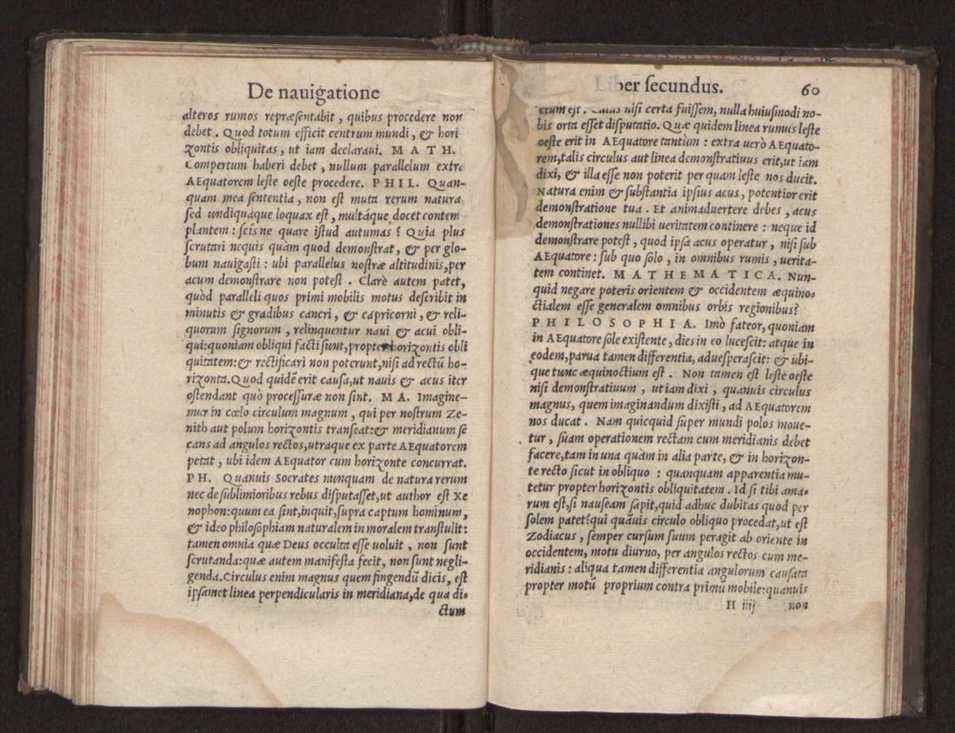 De nauigatione
alteros rumos repræsentabit, quibus procedere non
debet. Quod totum efficit centrum mundi, & hori
zontis obliquitas, ut iam declaraui. MATH.
Compertum haberi debet, nullum parallelum extra
AEquatorem leste oeste procedere. PHIL. Quan-
quam mea sententia, non est muta rerum natura
sed undiquaque loquax est, multáque docet contem
plantem: scis ne quare istud autumas? Quia plus
scrutari nequis quàm quod demonstrat, & per glo-
bum nauigasti: ubi parallelus nostræ altitudinis, per
acum demonstrare non potest. Clarè autem patet,
quòd paralleli quos primi mobilis motus describit in
minutis & gradibus cancri, & capricorni, & reli-
quorum signorum, relinquentur naui & acui obli-
qui: quoniam obliqui facti sunt, propter horizontis obli
quitatem: & rectificari non poterunt, nisi ad rectũ ho-
rizonta. Quod quidẽ erit causa, ut nauis & acus iter
ostendant quò processuræ non sint. MA. Imagine-
mur in cœlo circulum magnum, qui per nostrum Ze-
nith aut polum horizontis transeat: & meridianum se
cans ad angulos rectos, utraque ex parte AEquatorem
petat, ubi idem AEquator cum horizonte concurrat.
PH. Quanuis Socrates nunquam de natura rerum
nec de sublimioribus rebus disputasset, ut author est Xe
nophon: quum ea sint, inquit, supra captum hominum,
& ideo philosophiam naturalem in moralem transtulit:
tamen omnia quæ Deus occulta esse uoluit, non sunt
scrutanda: quæ autem manifesta fecit, non sunt negli-
genda. Circulus enim magnus quem fingendũ dicis, est
ipsamet linea perpendicularis in meridiana, de qua di-
ctum
Liber secundus. 60
ctum est. nisi certa fuissem, nulla huiusmodi no-
bis orta esset disputatio. Quæ quidem linea rumus leste
oeste erit in AEquatore tantùm: extra uerò AEquato-
rem, talis circulus aut linea demonstratiuus erit, ut iam
dixi, & illa esse non poterit per quam leste nos ducit.
Natura enim & substantia ipsius acus, potentior erit
demonstratione tua. Et animaduertere debes, acus
demonstrationes nullibi ueritatem continere: neque id
demonstrare potest, quod ipsa acus operatur, nisi sub
AEquatore: sub quo solo, in omnibus rumis, uerita-
tem continet. MATHEMATICA. Nun-
quid negare poteris orientem & occidentem æquino-
ctialem esse generalem omnibus orbis regionibus?
PHILOSOPHIA. Imò fateor, quoniam
in AEquatore sole existente, dies in eo lucescit: atque in
eodem, parua tamen differentia, aduesperascit: & ubi-
que tunc æquinoctium est. Non tamen est leste oeste
nisi demonstratiuum, ut iam dixi, quanuis circulus
magnus, quem imaginandum dixisti, ad AEquatorem
nos ducat. Nam quicquid super mundi polos moue-
tur, suam operationem rectam cum meridianis debet
facere, tam in una quàm in alia parte, & in horizon-
te recto sicut in obliquo: quanquam apparentia mu-
tetur propter horizontis obliquitatem. Id si tibi ama-
rum est, si nauseam sapit, quid adhuc dubitas quod per
solem patet? qui quãuis circulo obliquo procedat, ut est
Zodiacus, semper cursum suum peragit ab oriente in
occidentem, motu diurno, per angulos rectos cum me-
ridianis: aliqua tamen differentia angulorum causata
propter motũ proprium contra primũ mobile: quanuis
H iiij non